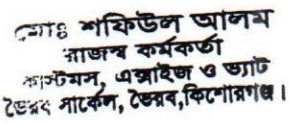 মোঃ শফিউল আলম
রাজস্ব কর্মকর্তা
কাস্টমস, এক্সাইজ ও ভ্যাট
ভৈরব সার্কেল, ভৈরব,কিশোরগঞ্জ।